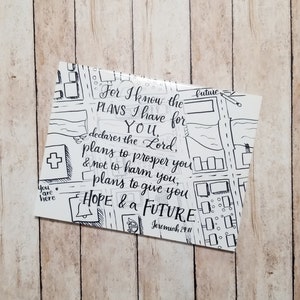 For I know the
PLANS I HAVE FOR
YOU,
declares the Lord,
plans to prosper you
& not to harm you,
plans to give you
HOPE & a FUTURE
Jeremiah 29:11
future
You
are
here